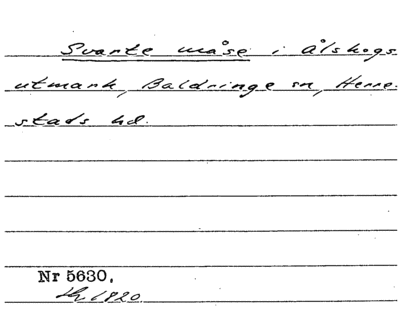 Svarte måse i Ålskogs
utmark, Baldringe sn, Herre-
stads hd.
Nr 5630.
1920